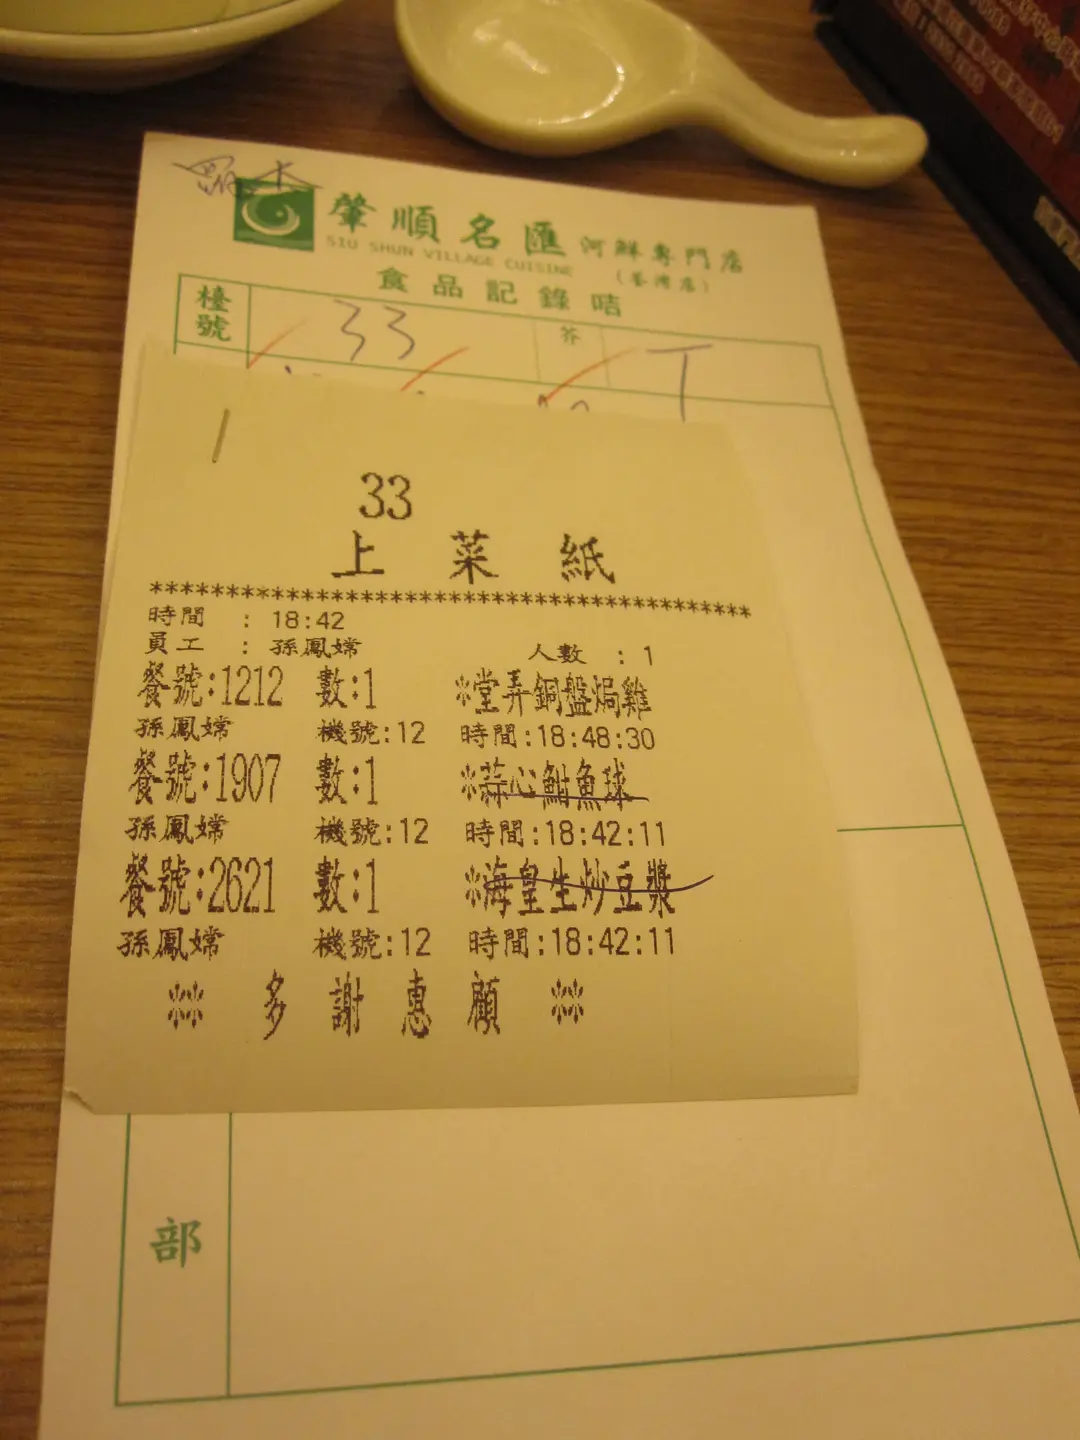 肇順名匯 河鮮專門店
SIU SHUN VILLAGE CUISINE
(荃灣店)
食品記錄咭
檯號 33 芥 T
33
上菜紙
*****************************************
時間 : 18:42
員工 : 孫鳳嫦 人數 : 1
餐號:1212 數:1 *堂弄銅盤焗雞
孫鳳嫦 機號:12 時間:18:48:30
餐號:1907 數:1 *蒜心鮒魚球
孫鳳嫦 機號:12 時間:18:42:11
餐號:2621 數:1 *海皇生炒豆漿
孫鳳嫦 機號:12 時間:18:42:11
** 多謝惠顧 **
部